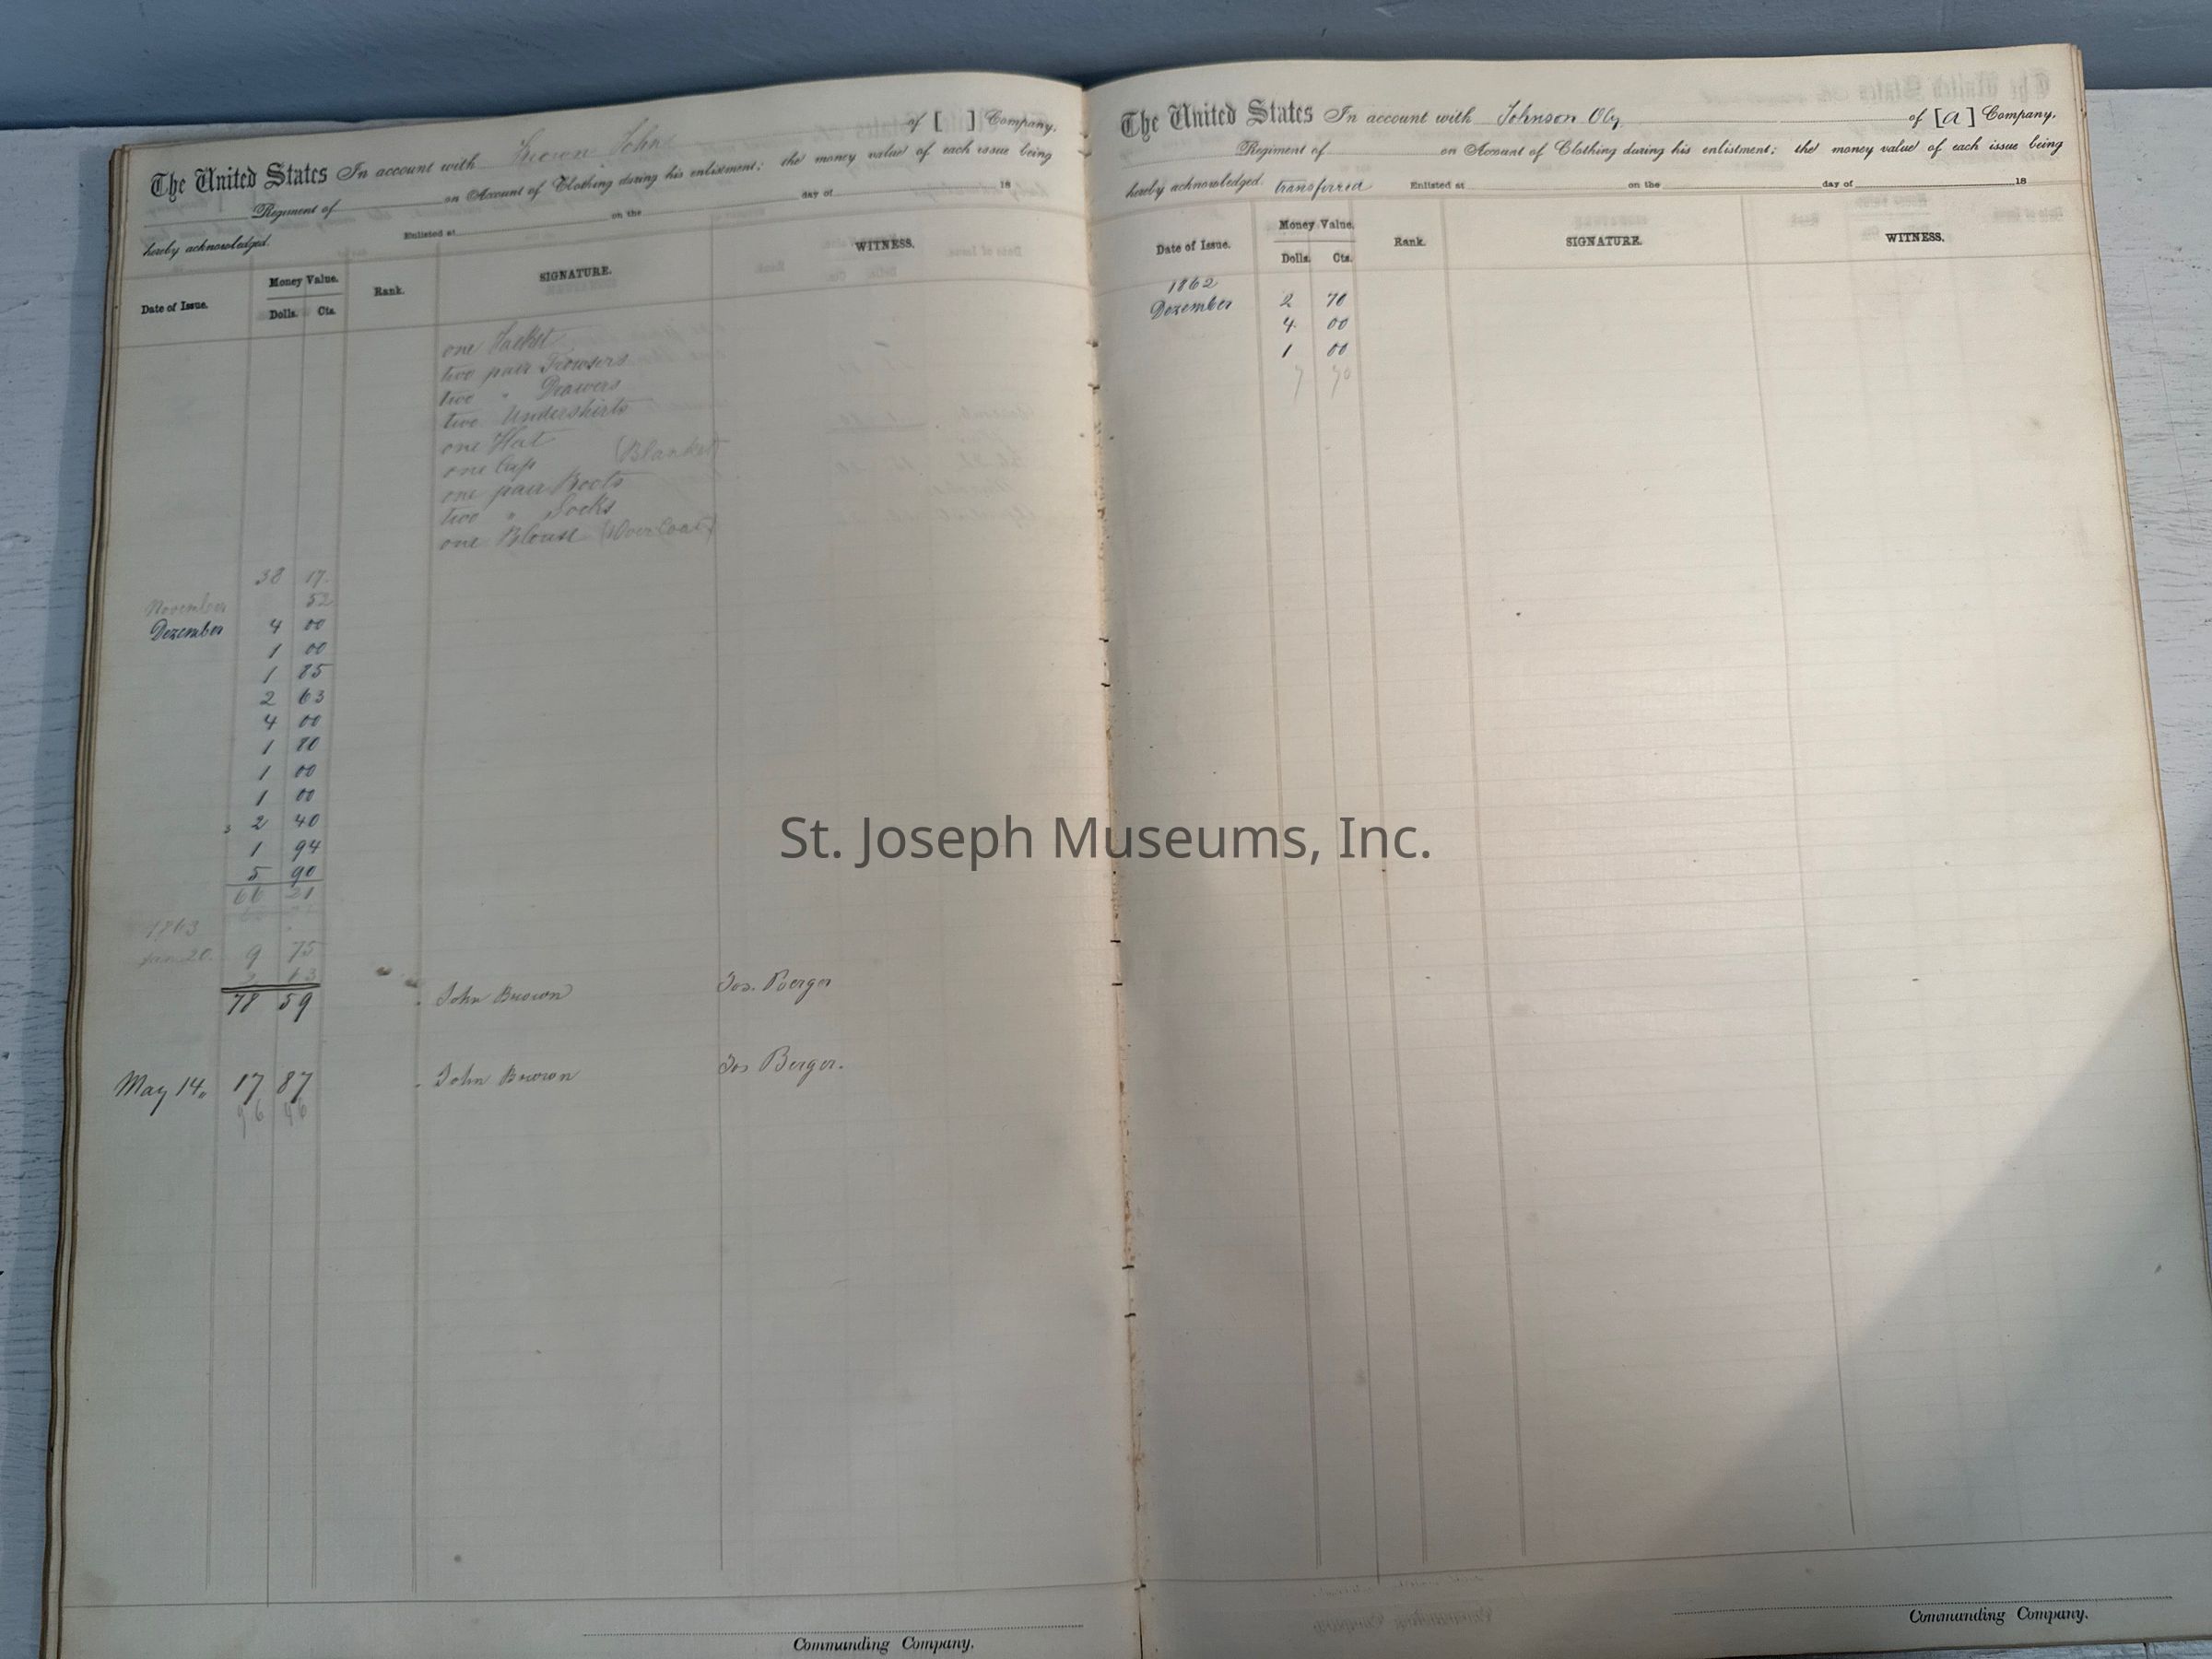 The United States In account with Brown John of [ ] Company,
Regiment of on Account of Clothing during his enlistment; the money value of each issue being
hereby acknowledged. Enlisted at on the day of 18
Date of Issue. Money Value. Dolls. Cts. Rank. SIGNATURE. WITNESS.
one Jacket
two pair Trowsers
two " Drawers
two Undershirts
one Hat
one Cap (Blanket)
one pair Boots
two " Socks
one Blouse (Overcoat)
38 17
November 52
Dezember 4 00
1 00
1 85
2 63
4 00
1 80
1 00
1 00
2 40
1 94
5 90
66 21
1863
Jan 20. 9 75
2 63
78 59 John Brown Jos. Berger
May 14. 17 87 John Brown Jos Berger.
96 46
Commanding Company.
The United States In account with Johnson Oly of [a] Company,
Regiment of on Account of Clothing during his enlistment; the money value of each issue being
hereby acknowledged. transferred Enlisted at on the day of 18
Date of Issue. Money Value. Dolls. Cts. Rank. SIGNATURE. WITNESS.
1862
Dezember 2 70
4 00
1 00
7 70
Commanding Company.
St. Joseph Museums, Inc.